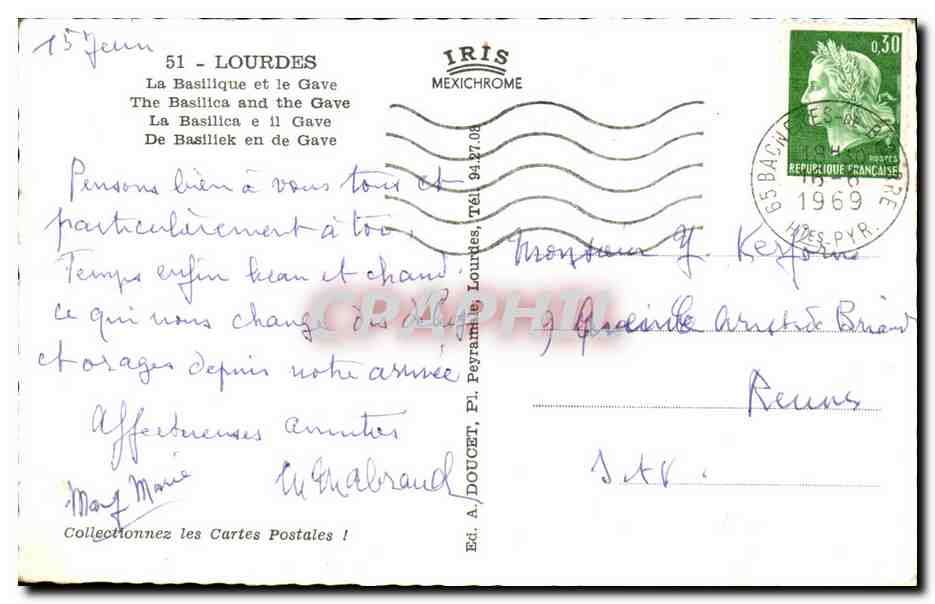 15 Juin
51 - LOURDES
La Basilique et le Gave
The Basilica and the Gave
La Basilica e il Gave
De Basiliek en de Gave
IRIS
MEXICHROME
0,30
POSTES
REPUBLIQUE FRANÇAISE
65 BAGNERES-DE-BIGORRE
1969
Htes-PYR.
Pensons bien à vous tous et
particulièrement à toi.
Temps enfin beau et chaud
ce qui nous change des déluges
et orages depuis notre arrivée
Affectueuses amitiés
Marie
Collectionnez les Cartes Postales !
Ed. A. DOUCET, Pl. Peyramale, Lourdes, Tél. 94.27.08
Monsieur Y.
9 Aristide Briand
Rennes
I et V.
CPAPHIL